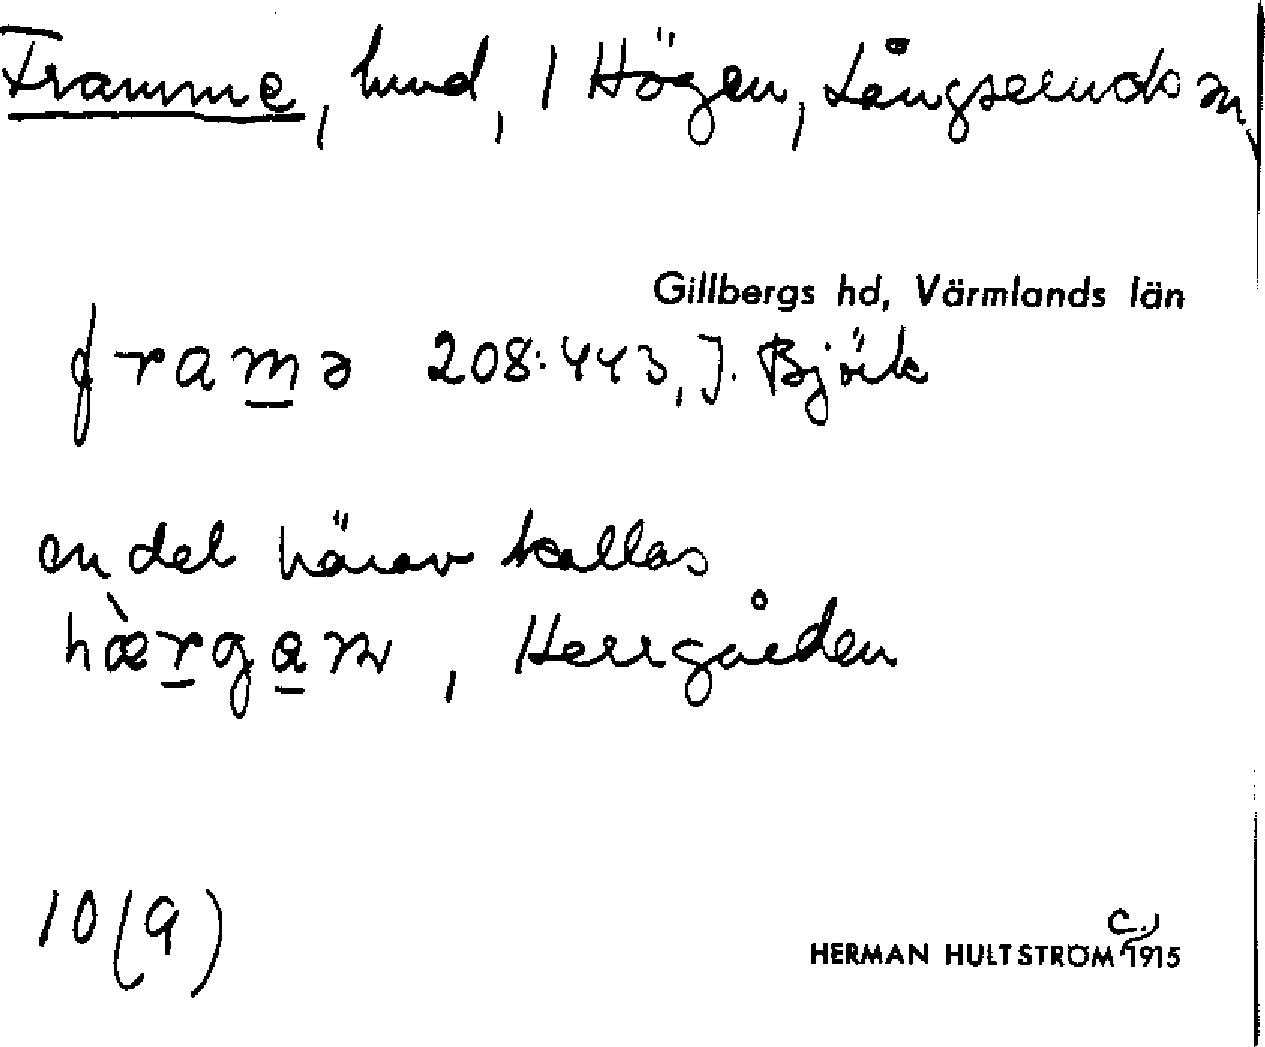 Framme, hmd, 1 Högen, Långseruds sn,
Gillbergs hd, Värmlands län
framə 208:443, J. Björk
en del härav kallas
hæ̀rgaɳ, Herrgården
10(9)
HERMAN HULTSTRÖM c. 1915